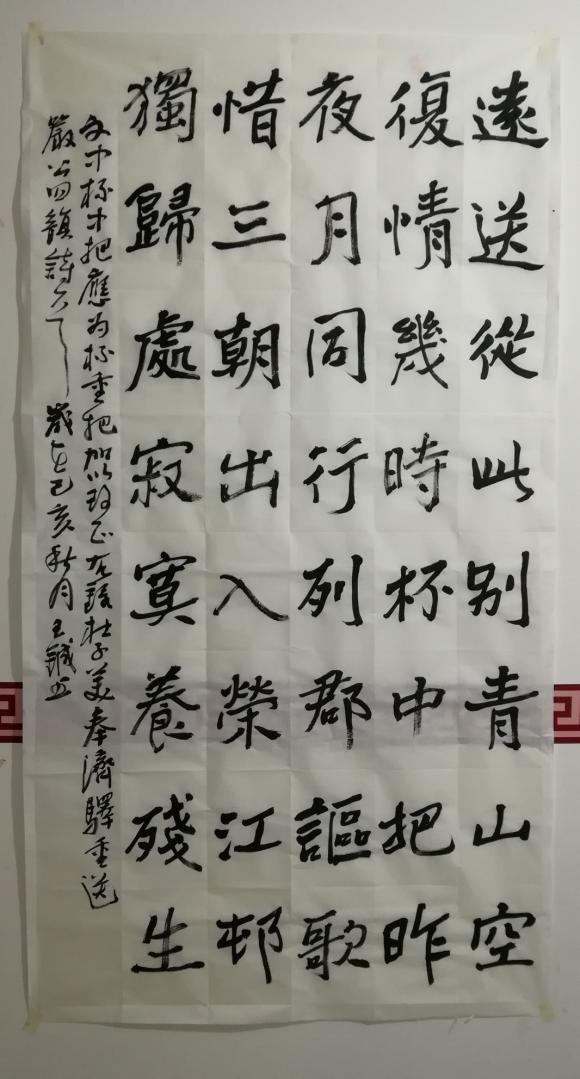 遠送從此別青山空
復情幾時杯中把昨
夜月同行列郡謳歌
惜三朝出入榮江邨
獨歸處寂寞養殘生
文中杯中把應為杯重把加以改正右錄杜子美奉濟驛重送
嚴公四韻詩 歲在己亥秋月王鋮書